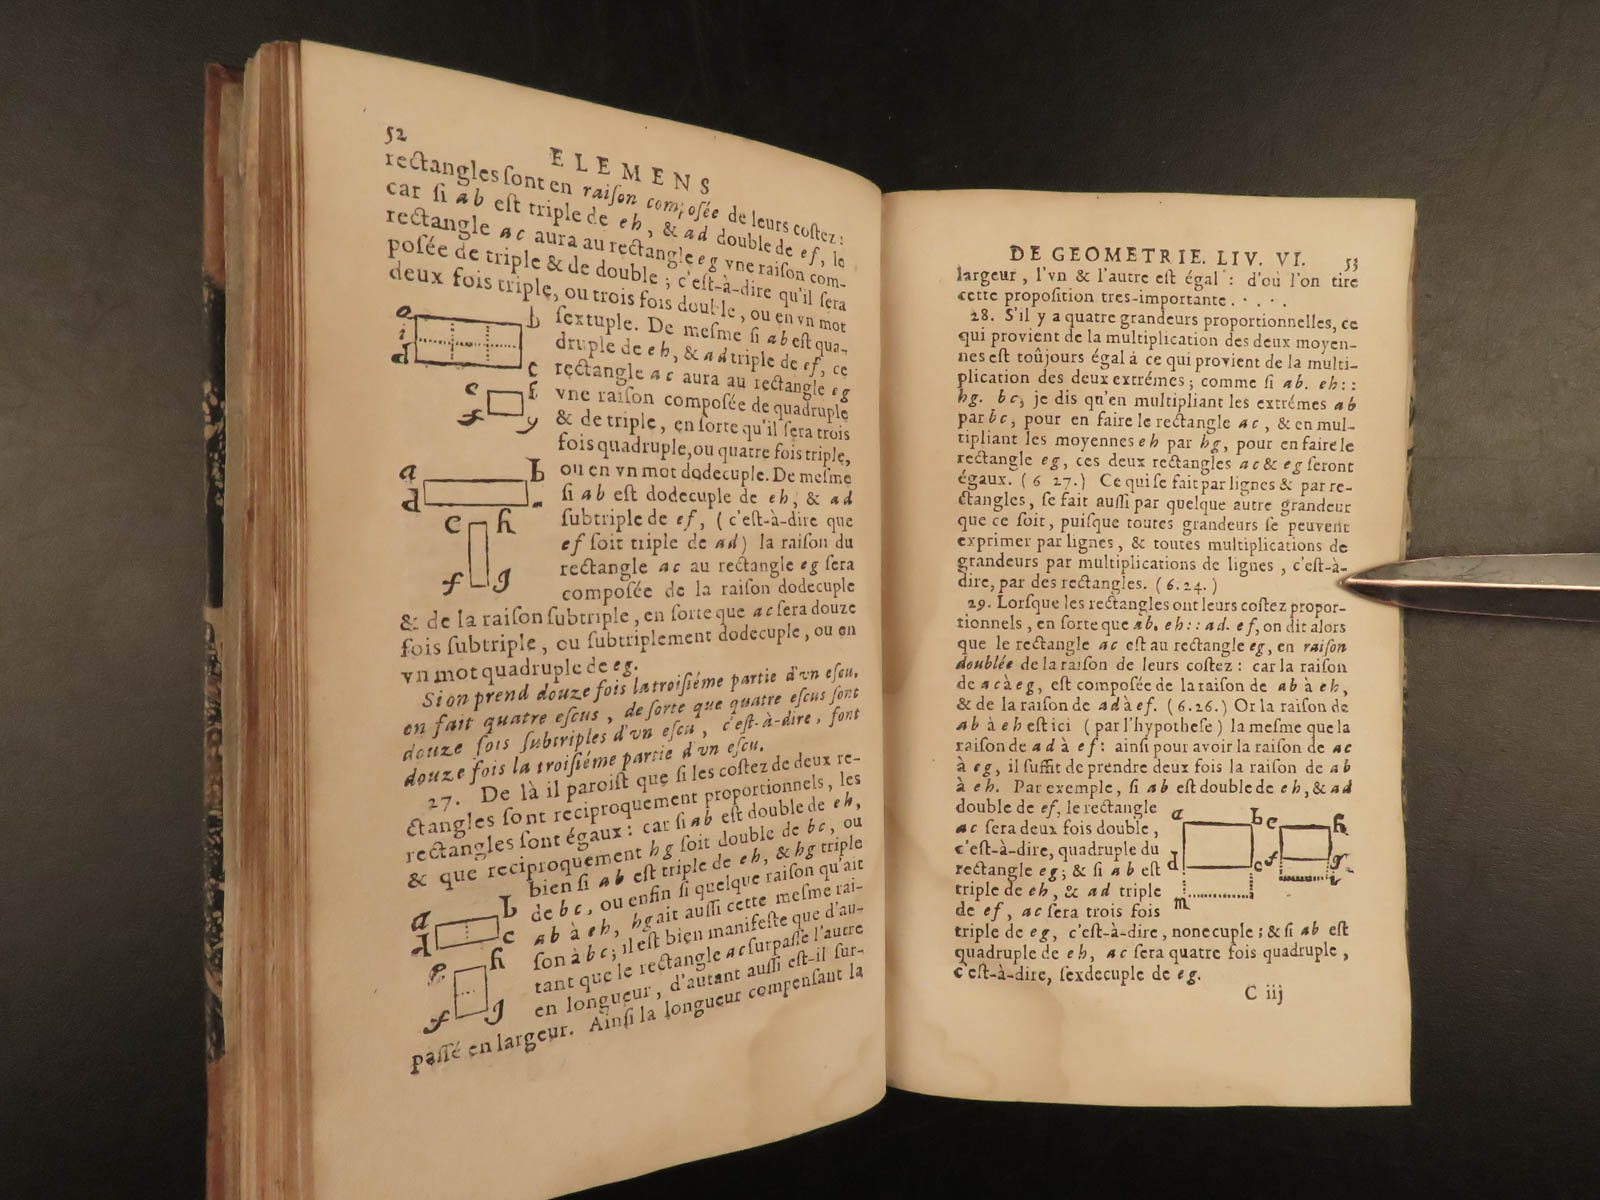 52
ELEMENS
rectangles sont en raison composée de leurs costez:
car si ab est triple de eh, & ad double de ef, le
rectangle ac aura au rectangle eg vne raison com-
posée de triple & de double; c'est-à-dire qu'il sera
deux fois triple, ou trois fois double, ou en vn mot
sextuple. De mesme si ab est qua-
druple de eh, & ad triple de ef, ce
rectangle ac aura au rectangle eg
vne raison composée de quadruple
& de triple, en sorte qu'il sera trois
fois quadruple, ou quatre fois triple,
ou en vn mot dodecuple. De mesme
si ab est dodecuple de eh, & ad
subtriple de ef, (c'est-à-dire que
ef soit triple de ad) la raison du
rectangle ac au rectangle eg sera
composée de la raison dodecuple
& de la raison subtriple, en sorte que ac sera douze
fois subtriple, ou subtriplement dodecuple, ou en
vn mot quadruple de eg.
Si on prend douze fois la troisiéme partie d'vn escu,
en fait quatre escus, de sorte que quatre escus sont
douze fois subtriples d'vn escu, c'est-à-dire, font
douze fois la troisiéme partie d'vn escu.
27. De là il paroist que si les costez de deux re-
ctangles sont reciproquement proportionnels, les
rectangles sont égaux: car si ab est double de eh,
& que reciproquement hg soit double de bc, ou
bien si ab est triple de eh, & hg triple
de bc, ou enfin si quelque raison qu'ait
ab à eh, hg ait aussi cette mesme rai-
son à bc; il est bien manifeste que d'au-
tant que le rectangle ac surpasse l'autre
en longueur, d'autant aussi est-il sur-
passé en largeur. Ainsi la longueur compensant la
a b
i
d c
e h
f g
a b
d
e h
f g
a b
d c
e h
f g
DE GEOMETRIE. LIV. VI. 53
largeur, l'vn & l'autre est égal: d'où l'on tire
cette proposition tres-importante. . . . .
28. S'il y a quatre grandeurs proportionnelles, ce
qui provient de la multiplication des deux moyen-
nes est toûjours égal à ce qui provient de la multi-
plication des deux extrémes; comme si ab. eh::
hg. bc; je dis qu'en multipliant les extrémes ab
par bc, pour en faire le rectangle ac, & en mul-
tipliant les moyennes eh par hg, pour en faire le
rectangle eg, ces deux rectangles ac & eg seront
égaux. (6 27.) Ce qui se fait par lignes & par re-
ctangles, se fait aussi par quelque autre grandeur
que ce soit, puisque toutes grandeurs se peuvent
exprimer par lignes, & toutes multiplications de
grandeurs par multiplications de lignes, c'est-à-
dire, par des rectangles. (6.24.)
29. Lorsque les rectangles ont leurs costez propor-
tionnels, en sorte que ab. eh:: ad. ef, on dit alors
que le rectangle ac est au rectangle eg, en raison
doublée de la raison de leurs costez: car la raison
de ac à eg, est composée de la raison de ab à eh,
& de la raison de ad à ef. (6.26.) Or la raison de
ab à eh est ici (par l'hypothese) la mesme que la
raison de ad à ef: ainsi pour avoir la raison de ac
à eg, il suffit de prendre deux fois la raison de ab
à eh. Par exemple, si ab est double de eh, & ad
double de ef, le rectangle
ac sera deux fois double,
c'est-à-dire, quadruple du
rectangle eg; & si ab est
triple de eh, & ad triple
de ef, ac sera trois fois
triple de eg, c'est-à-dire, nonecuple; & si ab est
quadruple de eh, ac sera quatre fois quadruple,
c'est-à-dire, sexdecuple de eg.
a b e h
d c f g
m i
C iij